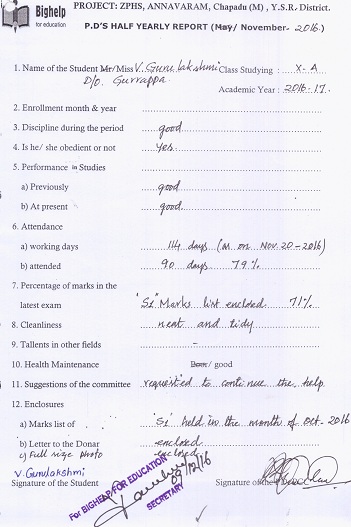 Bighelp
for education
PROJECT: ZPHS, ANNAVARAM, Chapadu (M), Y.S.R. District.
P.D'S HALF YEARLY REPORT (May/ November- 2016.)
1. Name of the Student Mr/Miss V. Gurulakshmi Class Studying : X-A
D/o. Gurrappa. Academic Year : 2016-17.
2. Enrollment month & year
3. Discipline during the period good
4. Is he/ she obedient or not yes
5. Performance in Studies
a) Previously good
b) At present good
6. Attendance
a) working days 114 days (as on Nov. 20-2016)
b) attended 90 days 79%
7. Percentage of marks in the
latest exam 'S1' Marks list enclosed 71%
8. Cleanliness neat and tidy
9. Tallents in other fields -
10. Health Maintenance / good
11. Suggestions of the committee requested to continue the help
12. Enclosures
a) Marks list of 'S1' held in the month of Oct. 2016
b) Letter to the Donar enclosed
c) Full size photo enclosed
V. Gurulakshmi
Signature of the Student Signature of the
For BIGHELP FOR EDUCATION
09/12/16
SECRETARY